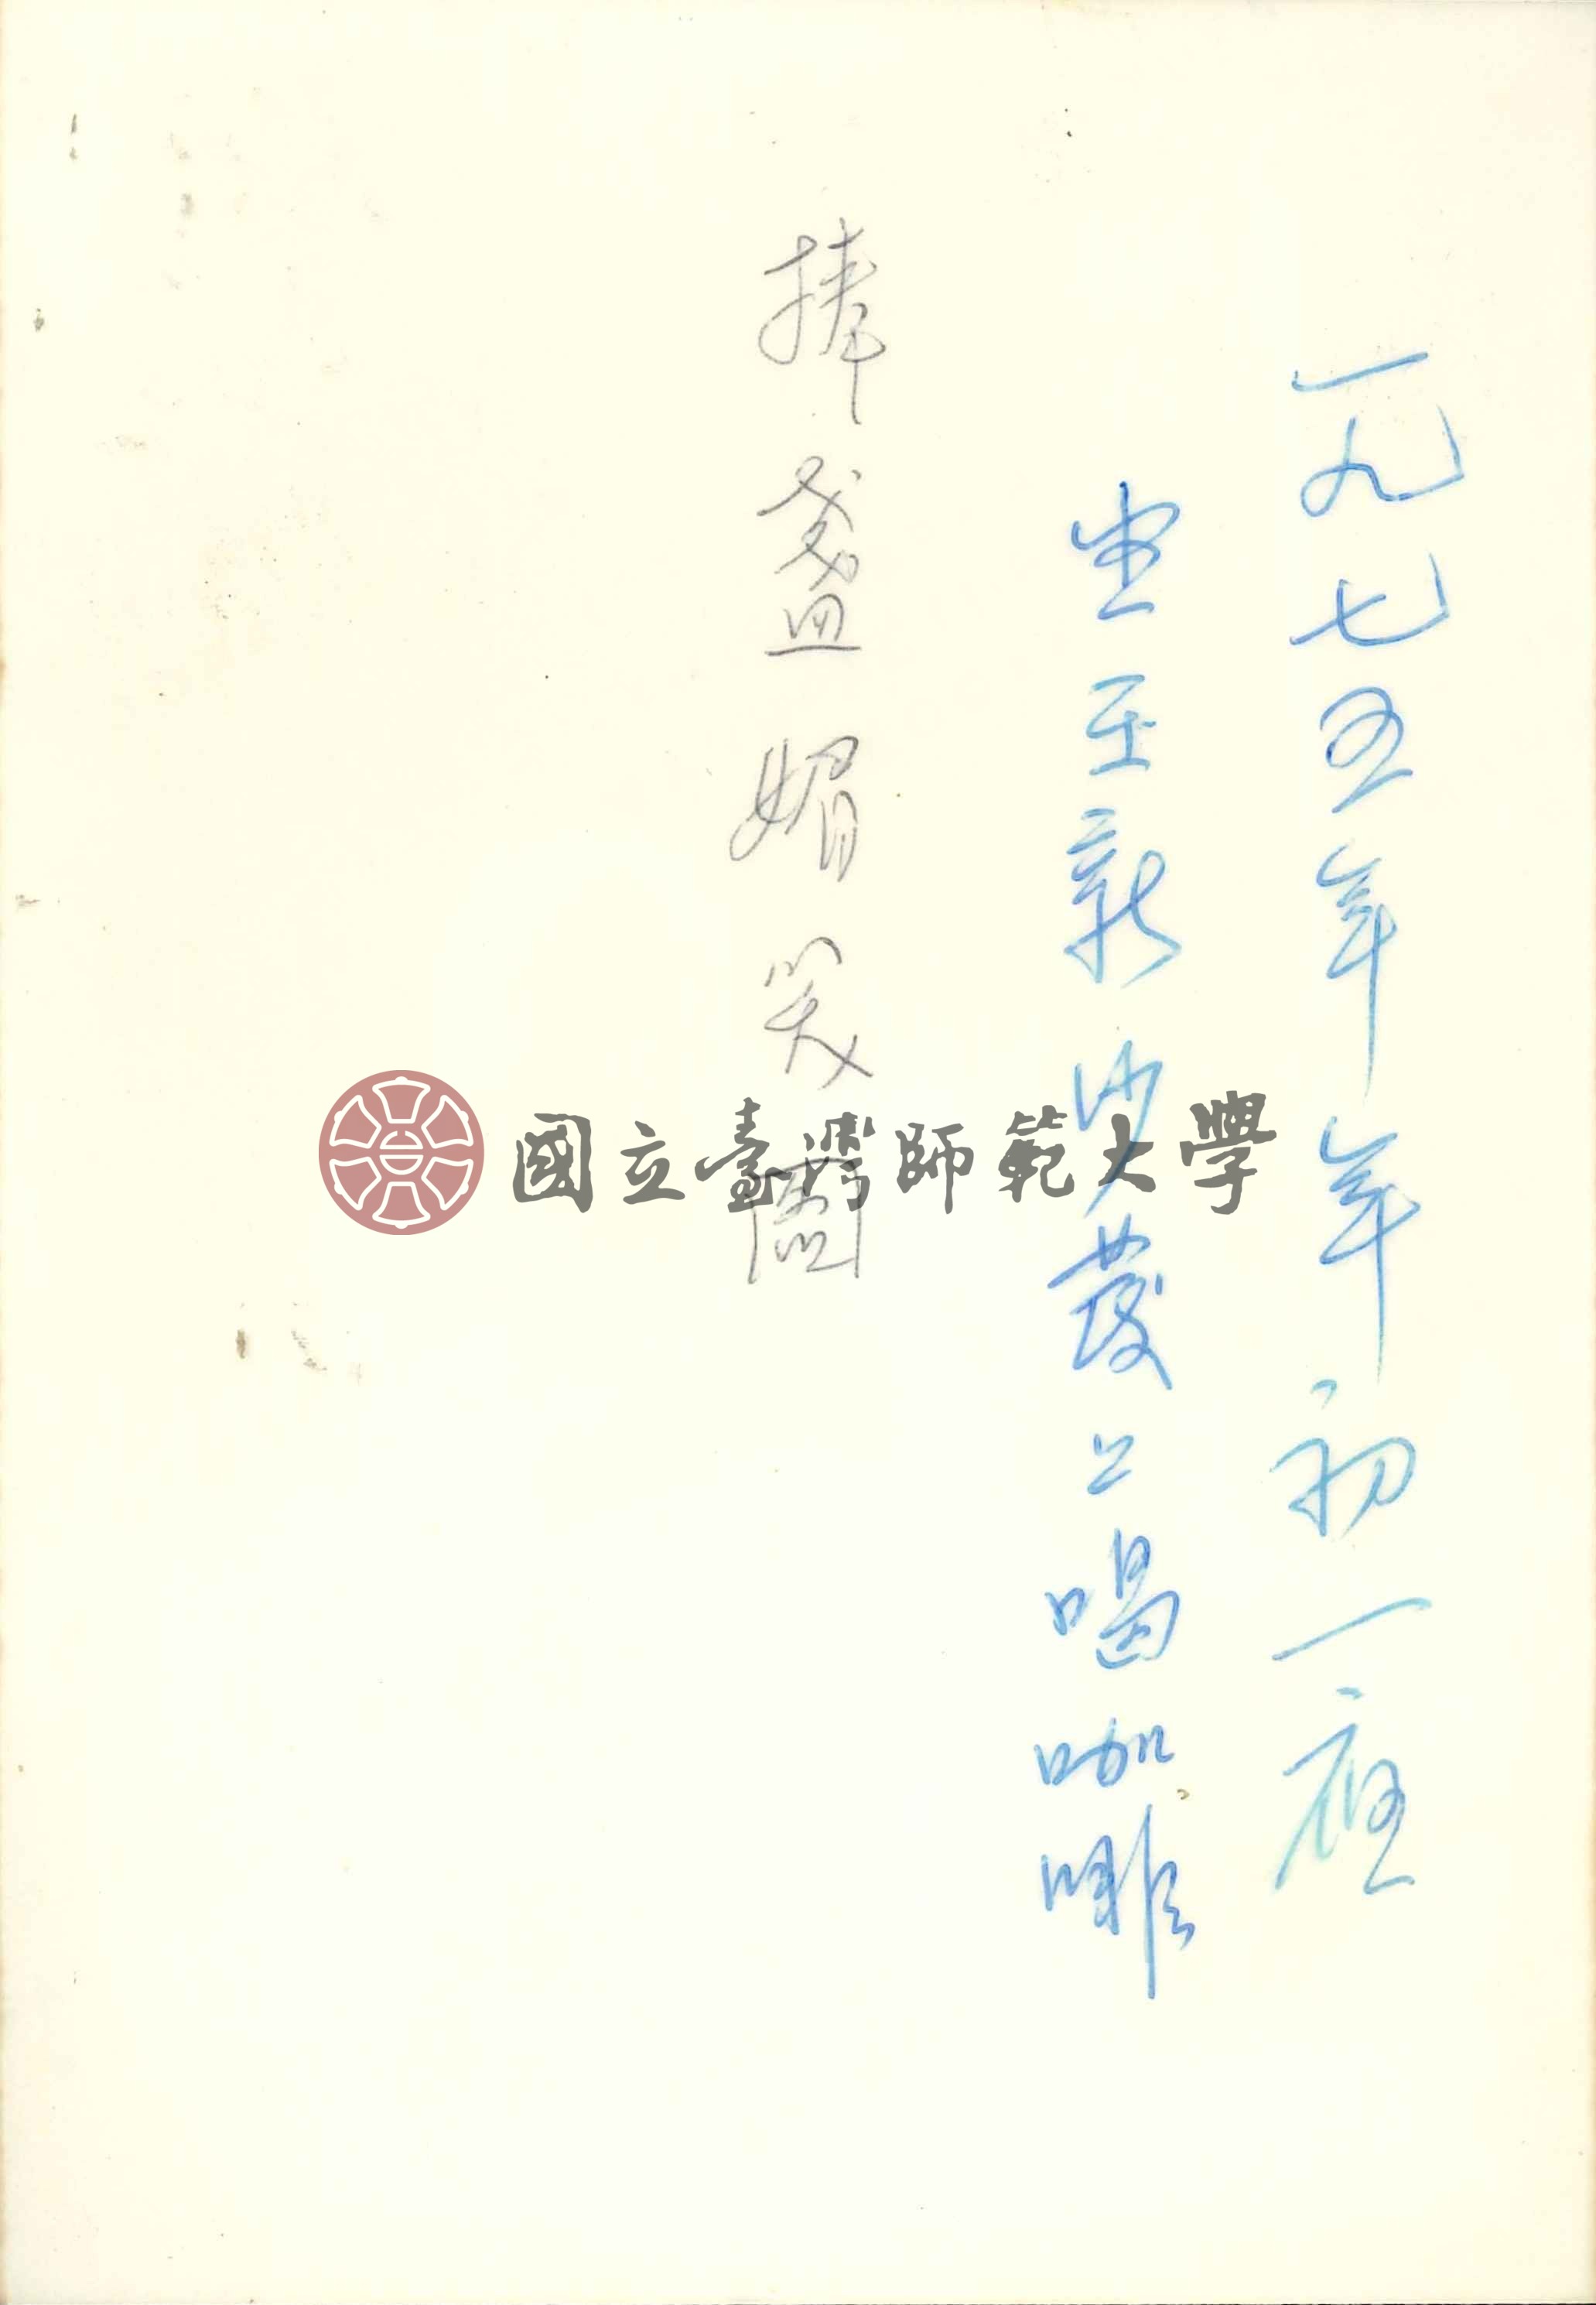 一九七五年年初一夜
坐在新沙發上喝咖啡
捧盞媚笑圖
國立臺灣師範大學